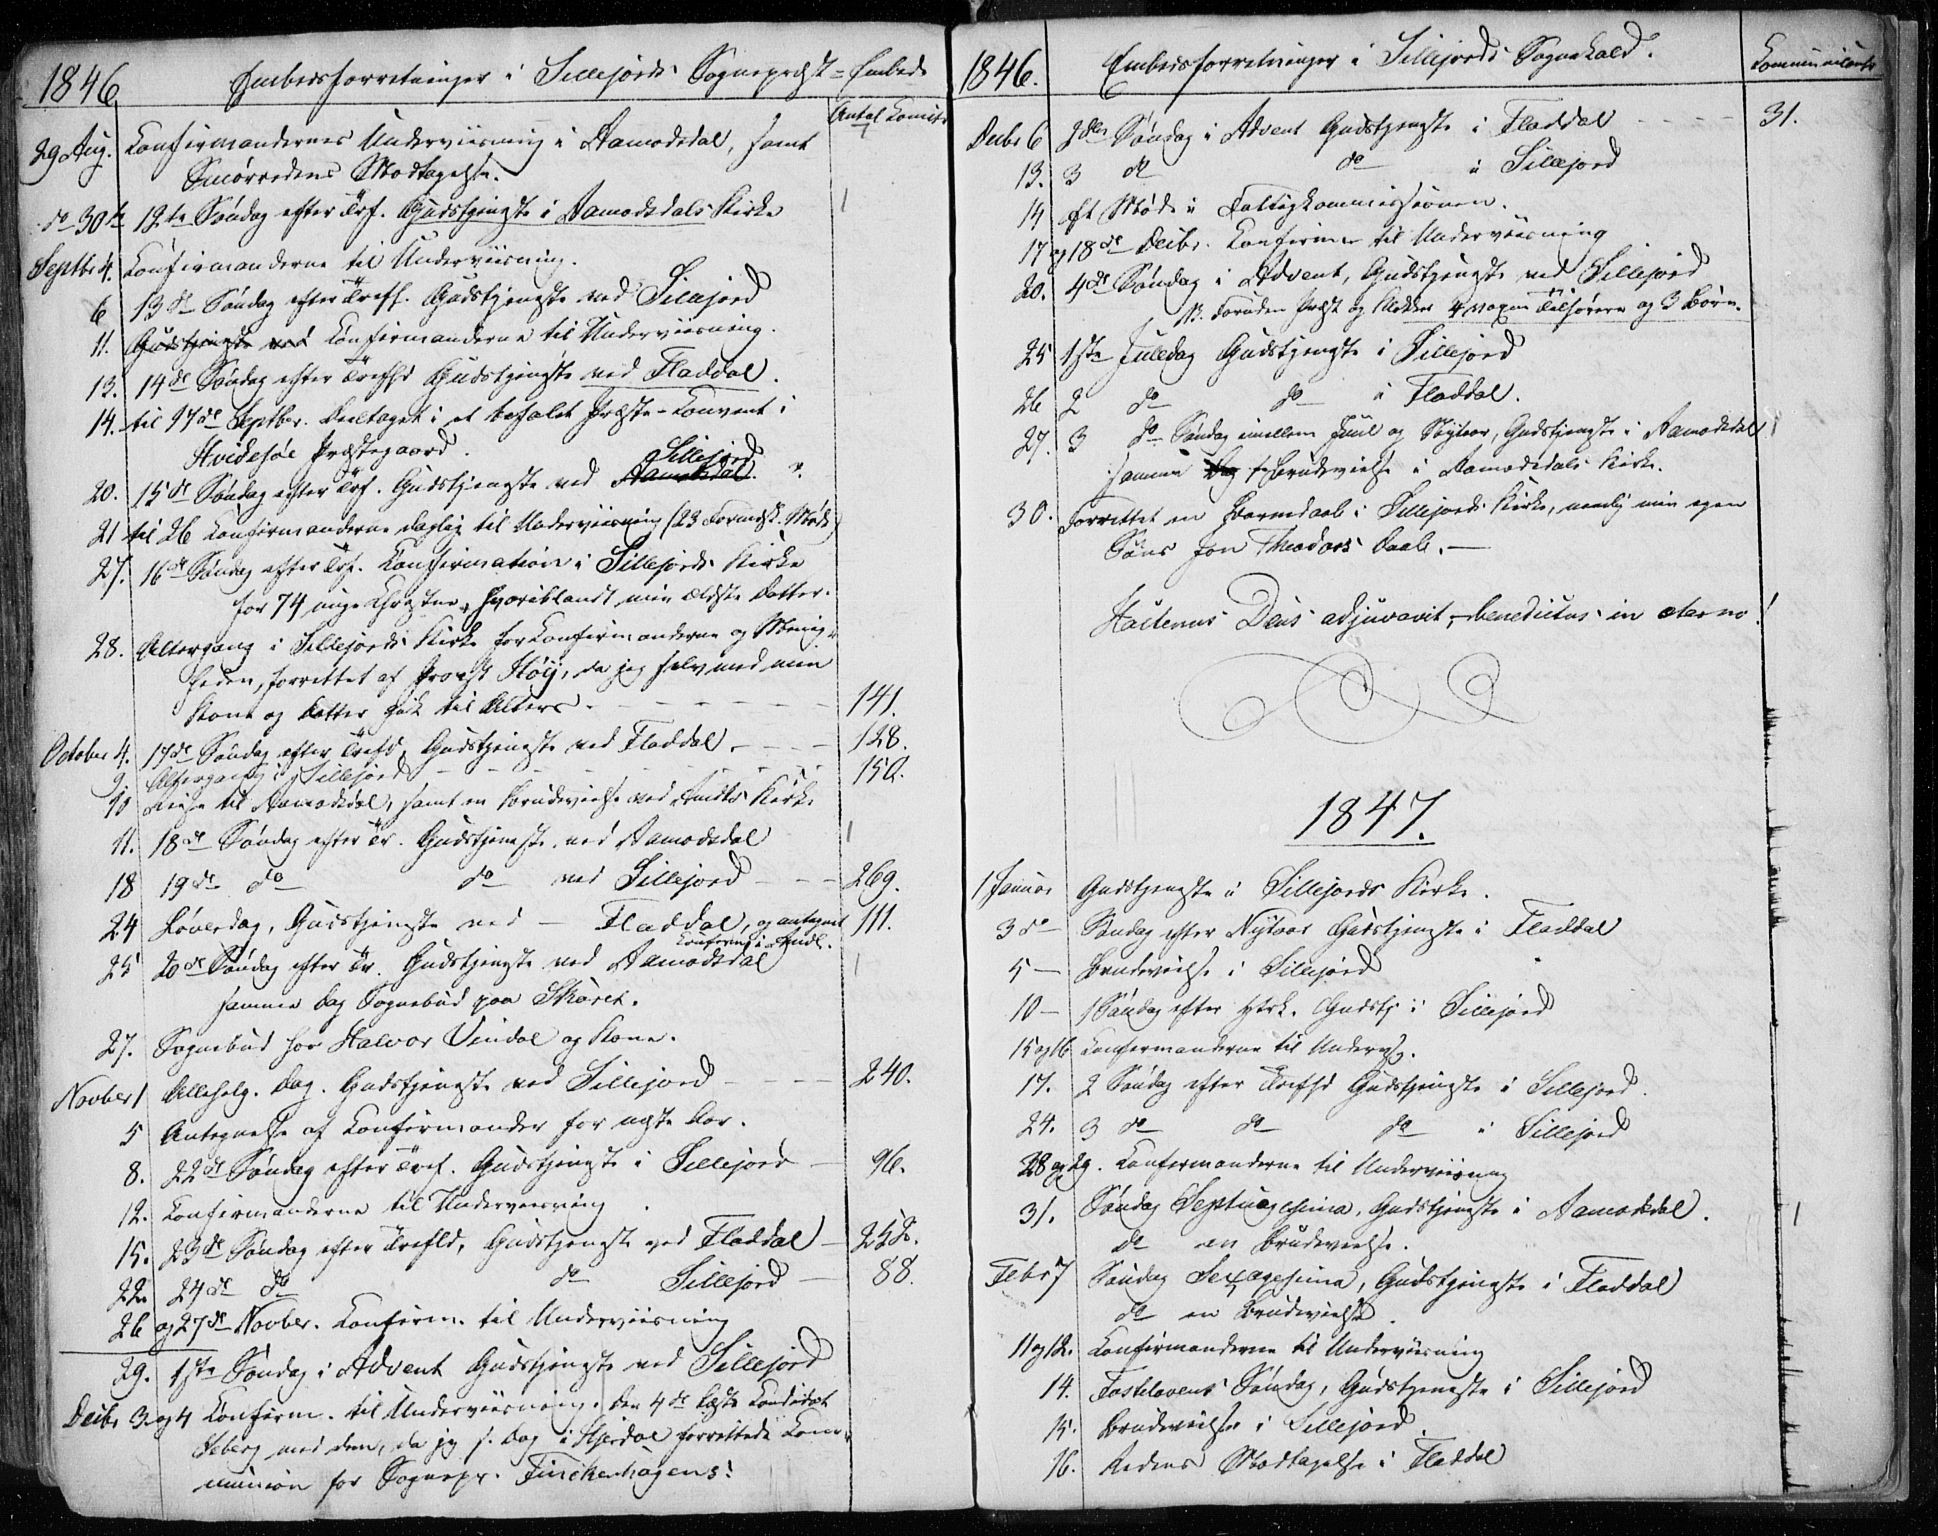 1846 Embedsforretninger i Sillejords Sognepræst-Embede
Antal Comts
29 Aug. Confirmandernes Underviisning i Aamodsdal, samt
Smørredens Modtagelse.
do 30te 12te Søndag efter Trf. Gudstjeneste i Aamodsdals Kirke 1
Septbr 4. Confirmanderne til Underviisning.
6 13de Søndag efter Treff. Gudstjeneste ved Sillejord
11. Gudstjeneste ved Confirmanderne til Underviisning.
13. 14de Søndag efter Trefhd Gudstjeneste ved Fladdal.
14. til 17de Septbr. Deeltaget i et befalet Præste-Convent i
Hvidesøe Præstegaard.
Sillejord
20. 15de Søndag efter Trf. Gudstjeneste ved Aamodsdal.
21 til 26 Confirmanderne daglig til Underviisning (23 Formdsk. Møde)
27. 16de Søndag efter Trf. Confirmation i Sillejords Kirke
for 74 unge Christne, hvoriblandt min ældste Datter.
28. Altergang i Sillejords Kirke for Confirmanderne og Menig-
heden, forrettet af Provst Høij, da jeg selv med min
Kone og Datter gik til Alters. 141.
October 4. 17de Søndag efter Trefd. Gudstjeneste ved Fladdal. 128.
9 Altergang i Sillejord 150.
10 Reise til Aamodsdal, samt en Brudevielse ved Kirke
11. 18de Søndag efter Tr. Gudstjeneste ved Aamodsdal 1
18 19de do do ved Sillejord 269.
24 Løverdag, Gudstjeneste ved Fladdal, og antegnet 111.
Confirm. i
25 20de Søndag efter Tr. Gudstjeneste ved Aamodsdal 1
samme Dag Sognebud paa Skoret.
27. Sognebud hos Halvor Vindal og Kone.
Novber 1 Allehelg. Dag. Gudstjeneste ved Sillejord 240.
5 Antegnelse af Confirmander for næste Aar.
8. 22de Søndag efter Tref. Gudstjeneste i Sillejord 96.
12. Confirmanderne til Underviisning.
15. 23de Søndag efter Trefld, Gudstjeneste ved Fladdal 252.
22. 24de do do Sillejord 88.
26 og 27de Novber. Confirm. til Underviisning
29. 1ste Søndag i Advent Gudstjeneste ved Sillejord
Decbr 3 og 4 Confirm. til Underviisning. Den 4de læste Candidat
Seberg med dem, da jeg s. Dag i Hjerdal forrettede Com-
munion for Sognepr. Finckenhagens.
1846. Embedsforretninger i Sillejords Sognekald.
Communicants
Decbr 6 2den Søndag i Advent Gudstjeneste i Fladdal 31.
13. 3 do do i Sillejord
14 Et Møde i Fattigkommissionen.
17 og 18de Decbr. Confirm. til Underviisning
20. 4de Søndag i Advent, Gudstjeneste ved Sillejord
NB. foruden Præst og Klokker 4 voxne Tilhørere og 3 Børn.
25 1ste Juledag Gudstjeneste i Sillejord
26 2 do do i Fladdal.
27. 3 do Søndag imellem Juul og Nytaar, Gudstjeneste i Aamodsdal 1
samme Dag Brudevielse i Aamodsdals Kirke.
30. Forrettet en Barnedaab i Sillejords Kirke, nemlig min egen
Søns Jon Theodors Daab.
Hactenus Deus adjuvavit, benedictus in æterno!
1847.
1 Januar Gudstjeneste i Sillejords Kirke.
3 do Søndag efter Nytaar Gudstjeneste i Fladdal
5 Brudevielse i Sillejord
10 1 Søndag efter Gudstj. i Sillejord
15 og 16 Confirmanderne til Undervsg.
17. 2 Søndag efter Trefhd Gudstjeneste i Sillejord.
24. 3 do do do i Sillejord
28 og 29. Confirmanderne til Underviisning
31. Søndag Septuagesima, Gudstjeneste i Aamodsdal. 1
do en Brudevielse.
Febr 7 Søndag Sexagesima, Gudstjeneste i Fladdal
do en Brudevielse
11 og 12. Confirmanderne til Underviisning
14. Fastelavens Søndag, Gudstjeneste i Sillejord
15. Brudevielse i Sillejord.
16. Redens Modtagelse i Fladdal